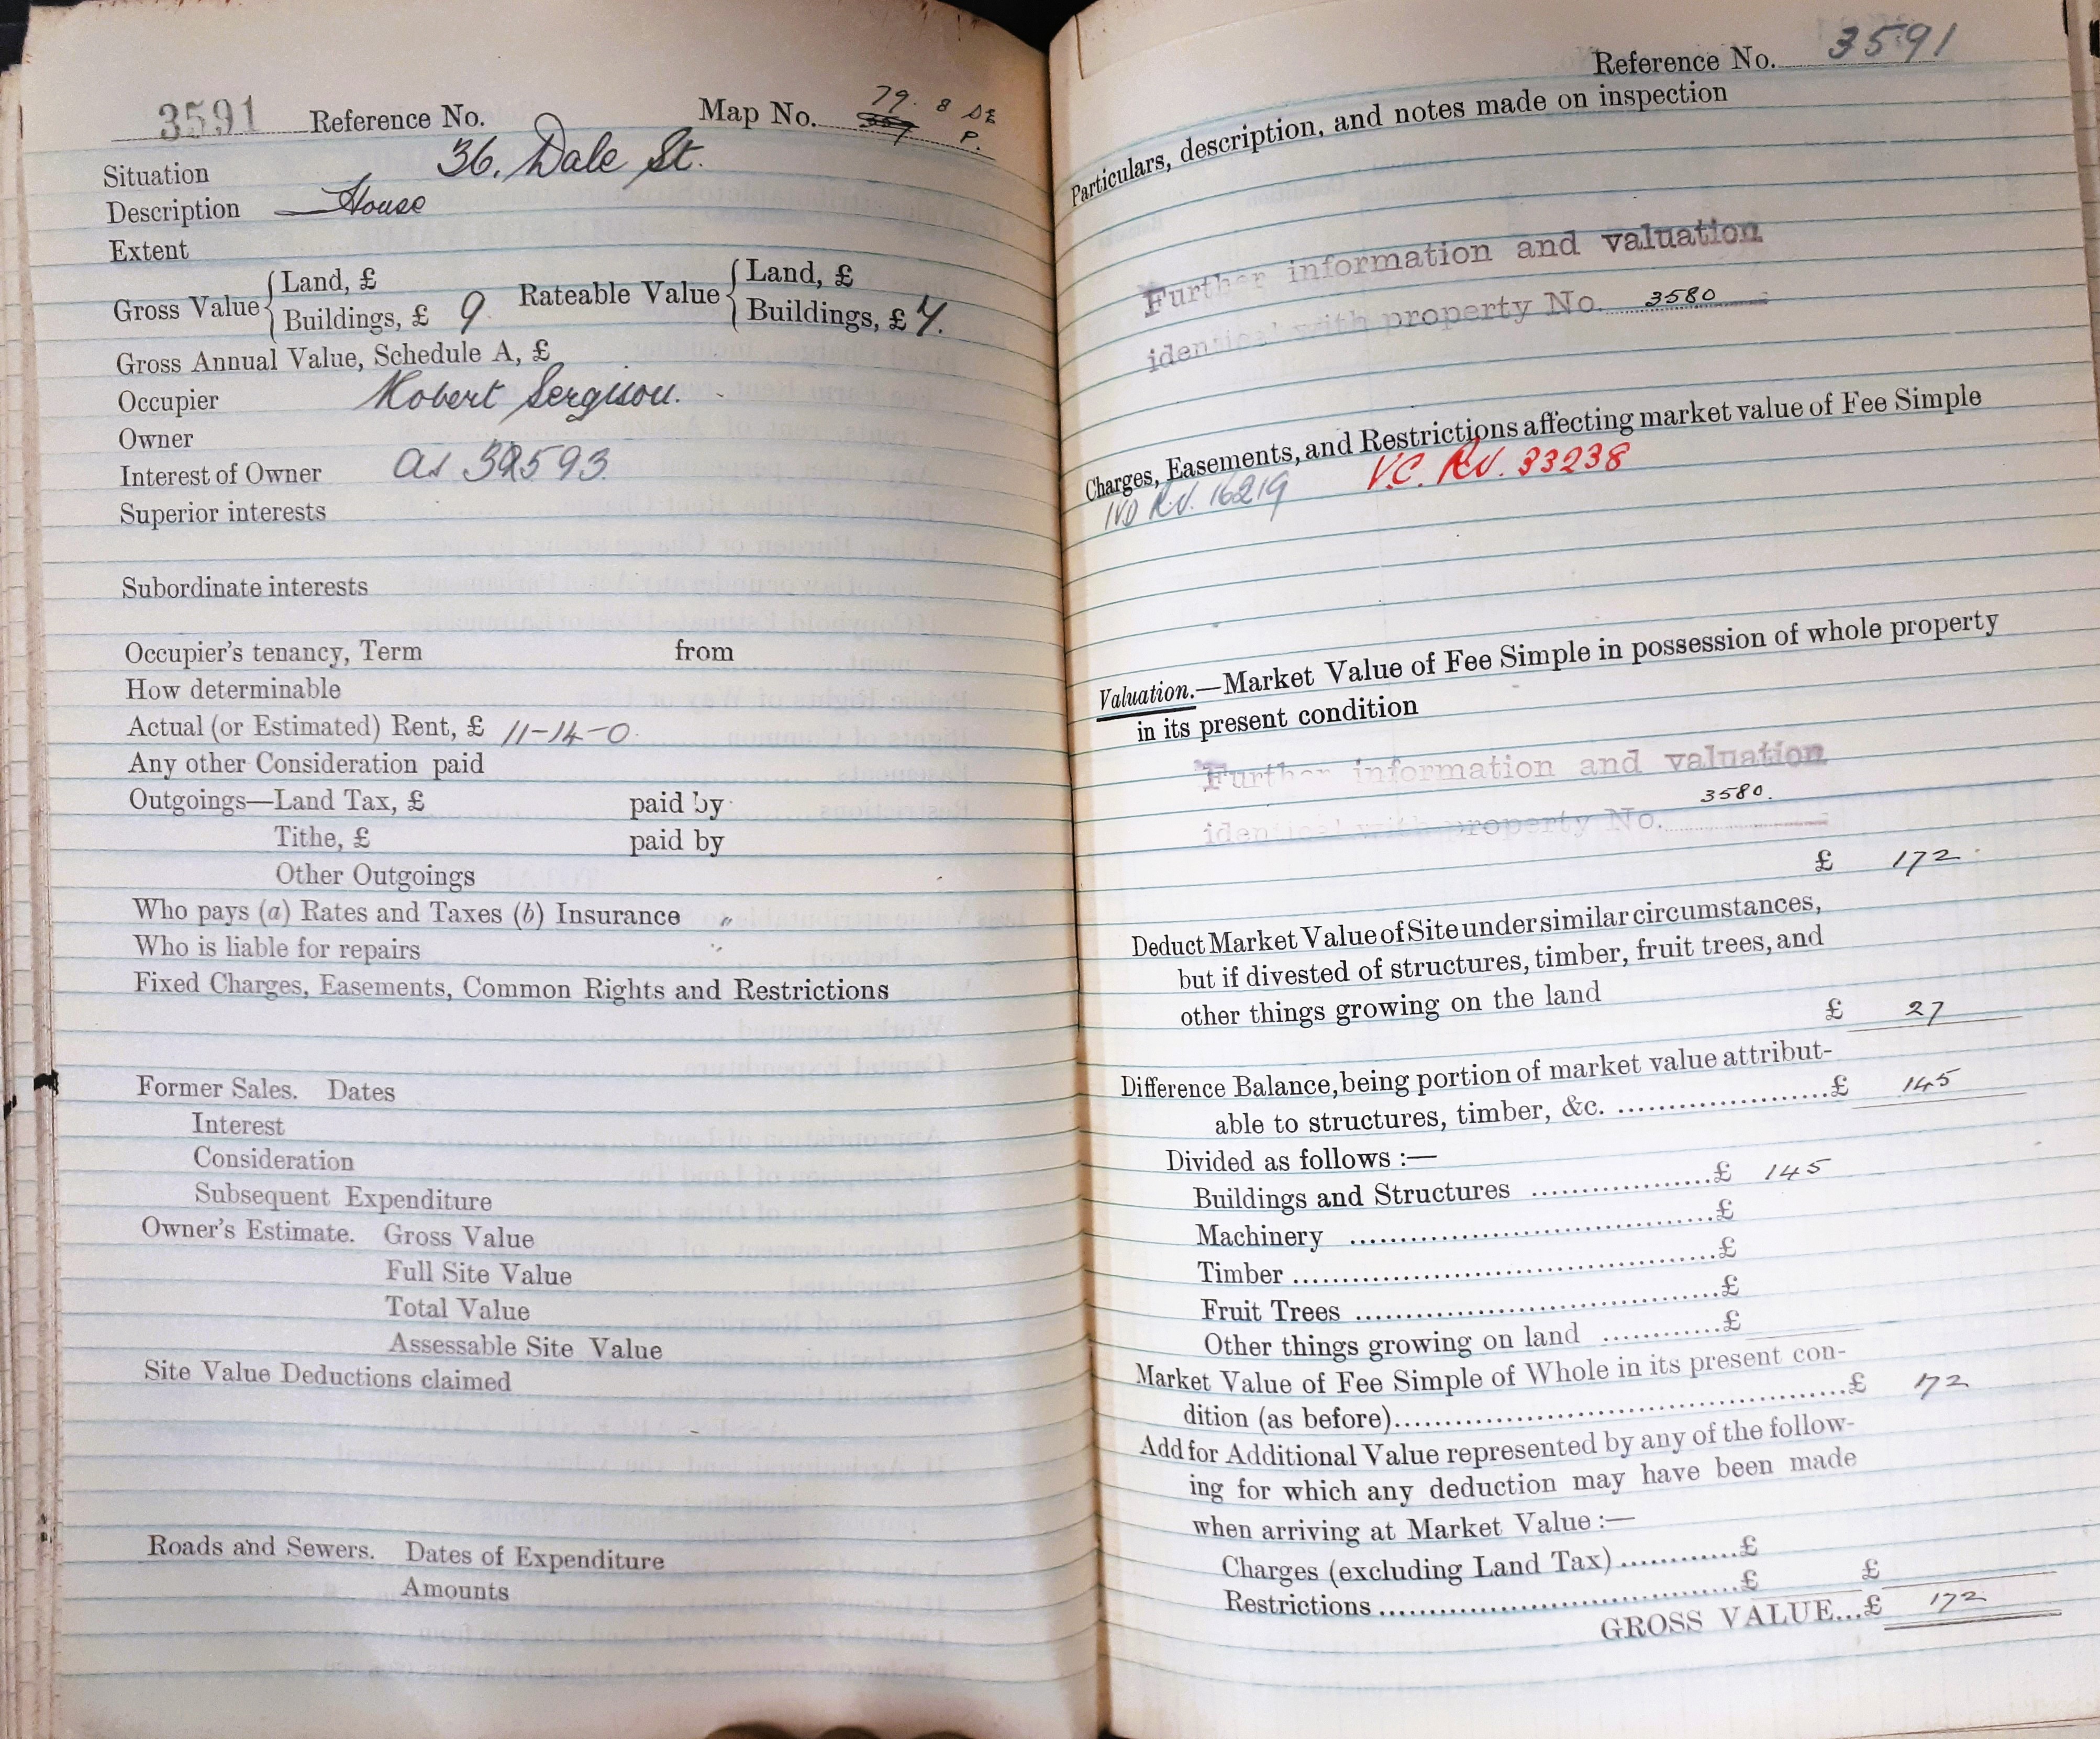 3591 Reference No. Map No. 79. 8 SE
P.
Situation 36, Dale St.
Description House
Extent
Gross Value { Land, £ Rateable Value { Land, £
Buildings, £ 9 Buildings, £ 7.
Gross Annual Value, Schedule A, £
Occupier Robert Sergison.
Owner
Interest of Owner as 3593.
Superior interests
Subordinate interests
Occupier's tenancy, Term from
How determinable
Actual (or Estimated) Rent, £ 11-14-0.
Any other Consideration paid
Outgoings—Land Tax, £ paid by
Tithe, £ paid by
Other Outgoings
Who pays (a) Rates and Taxes (b) Insurance "
Who is liable for repairs "
Fixed Charges, Easements, Common Rights and Restrictions
Former Sales. Dates
Interest
Consideration
Subsequent Expenditure
Owner's Estimate. Gross Value
Full Site Value
Total Value
Assessable Site Value
Site Value Deductions claimed
Roads and Sewers. Dates of Expenditure
Amounts
Reference No. 3591
Particulars, description, and notes made on inspection
Further information and valuation
identical with property No. 3580
Charges, Easements, and Restrictions affecting market value of Fee Simple
R.V. 16219 V.C. R.V. 33238
Valuation.—Market Value of Fee Simple in possession of whole property
in its present condition
Further information and valuation
identical with property No. 3580.
£ 172.
Deduct Market Value of Site under similar circumstances,
but if divested of structures, timber, fruit trees, and
other things growing on the land
£ 27
Difference Balance, being portion of market value attribut-
able to structures, timber, &c. ........................£ 145
Divided as follows :—
Buildings and Structures ....................£ 145
Machinery ........................................£
Timber ..............................................£
Fruit Trees ........................................£
Other things growing on land .............£
Market Value of Fee Simple of Whole in its present con-
dition (as before)..................................................£ 172
Add for Additional Value represented by any of the follow-
ing for which any deduction may have been made
when arriving at Market Value :—
Charges (excluding Land Tax).............£
Restrictions........................................£ £
GROSS VALUE...£ 172